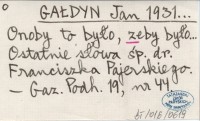 GAŁDYN Jan 1931...
Osoby to było, żeby było...
Ostatnie słowa śp. dr.
Franciszka Pajerskiego.
– Gaz. Podh. 19 nr 44
BJ/01E/0619